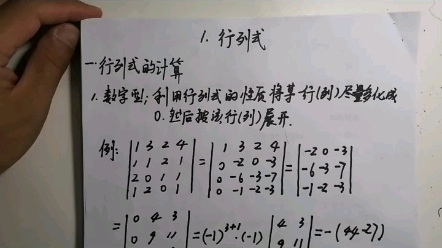 1. 行列式
一. 行列式的计算
1. 数字型: 利用行列式的性质将某行(列)尽量多化成
0. 然后按该行(列)展开.
例: |1 3 2 4| = |1 3 2 4| = |-2 0 -3|
|1 1 2 1| |0 -2 0 -3| |-6 -3 -7|
|2 0 1 1| |0 -6 -3 -7| |-1 -2 -3|
|1 2 0 1| |0 -1 -2 -3|
= |0 4 3| = (-1)^{3+1}·(-1) |4 3| = -(44-27)
|0 9 11| |9 11|